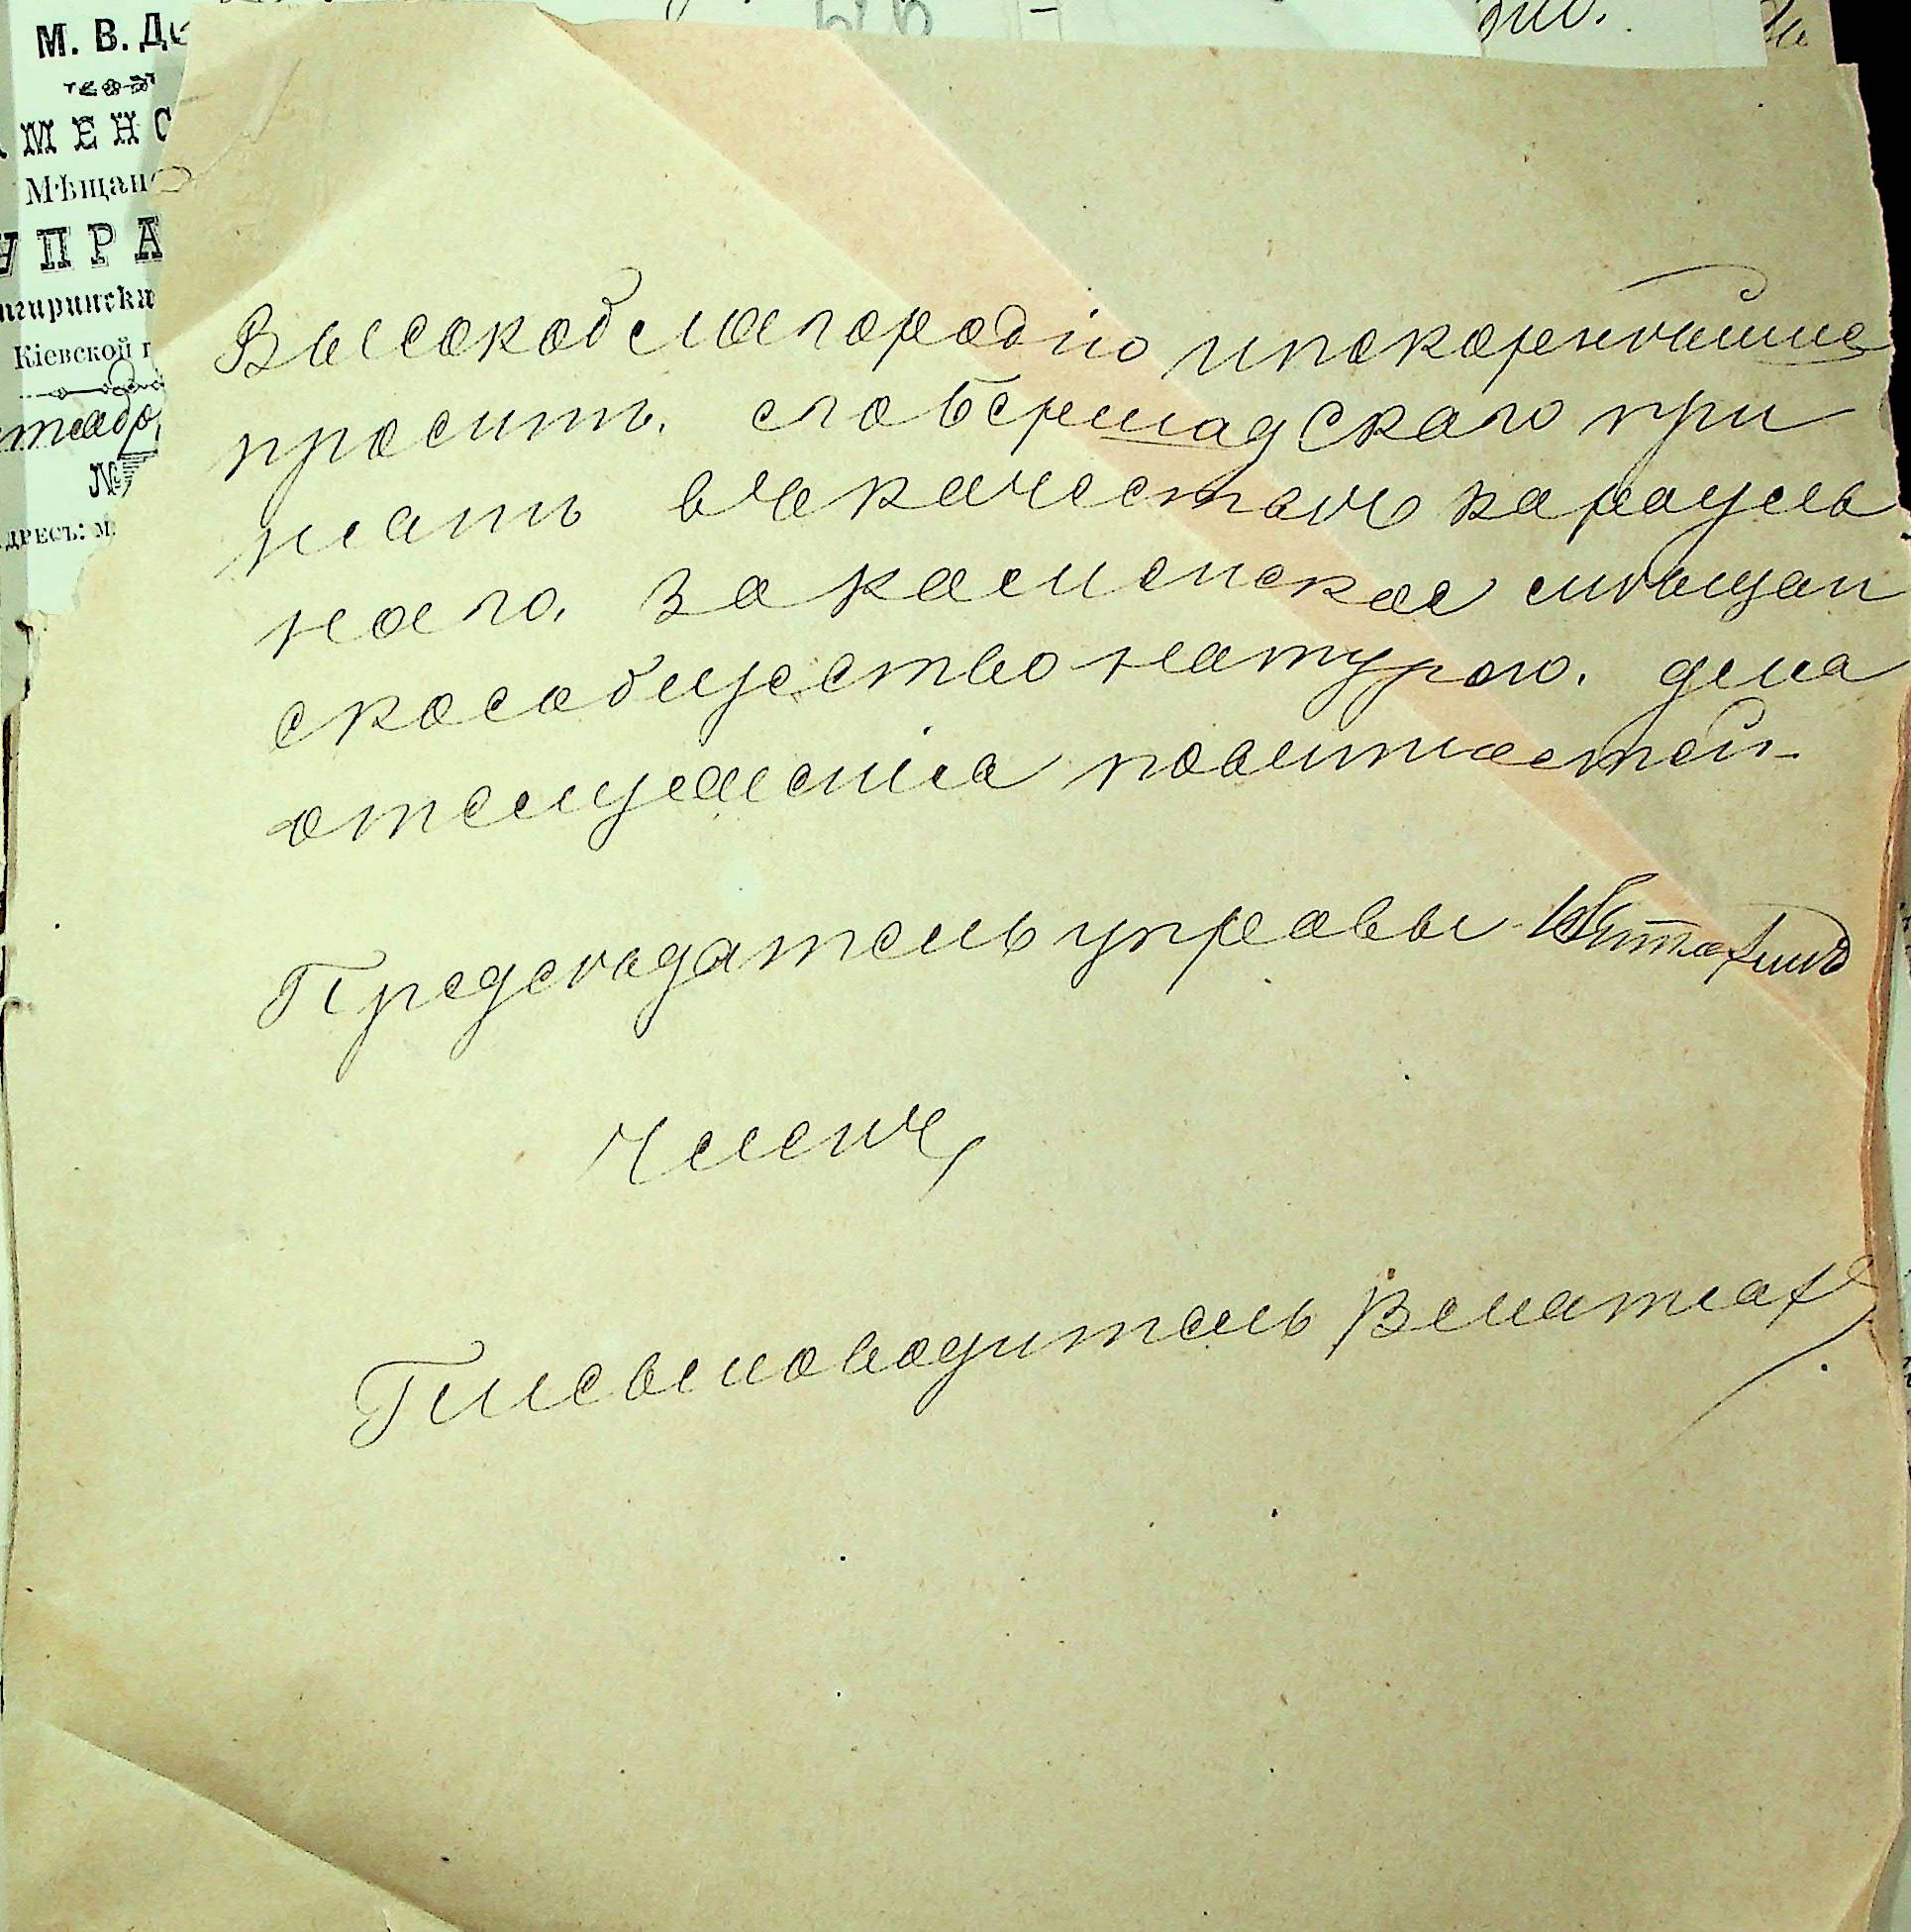 М. В. Д
МЕНС
Мѣщан
УПРА
игиринска
Кіевской г
№
АДРЕСЪ: М.
Высокоблагородію ипокорнѣйше
просить. его Бершадскаго при
нять въ качествѣ карауль
наго, за каменское мѣщан
скоеобщество натурою. для
отслуженія повинностей-
Предсѣдатель управы
Членъ,
Письмоводитель